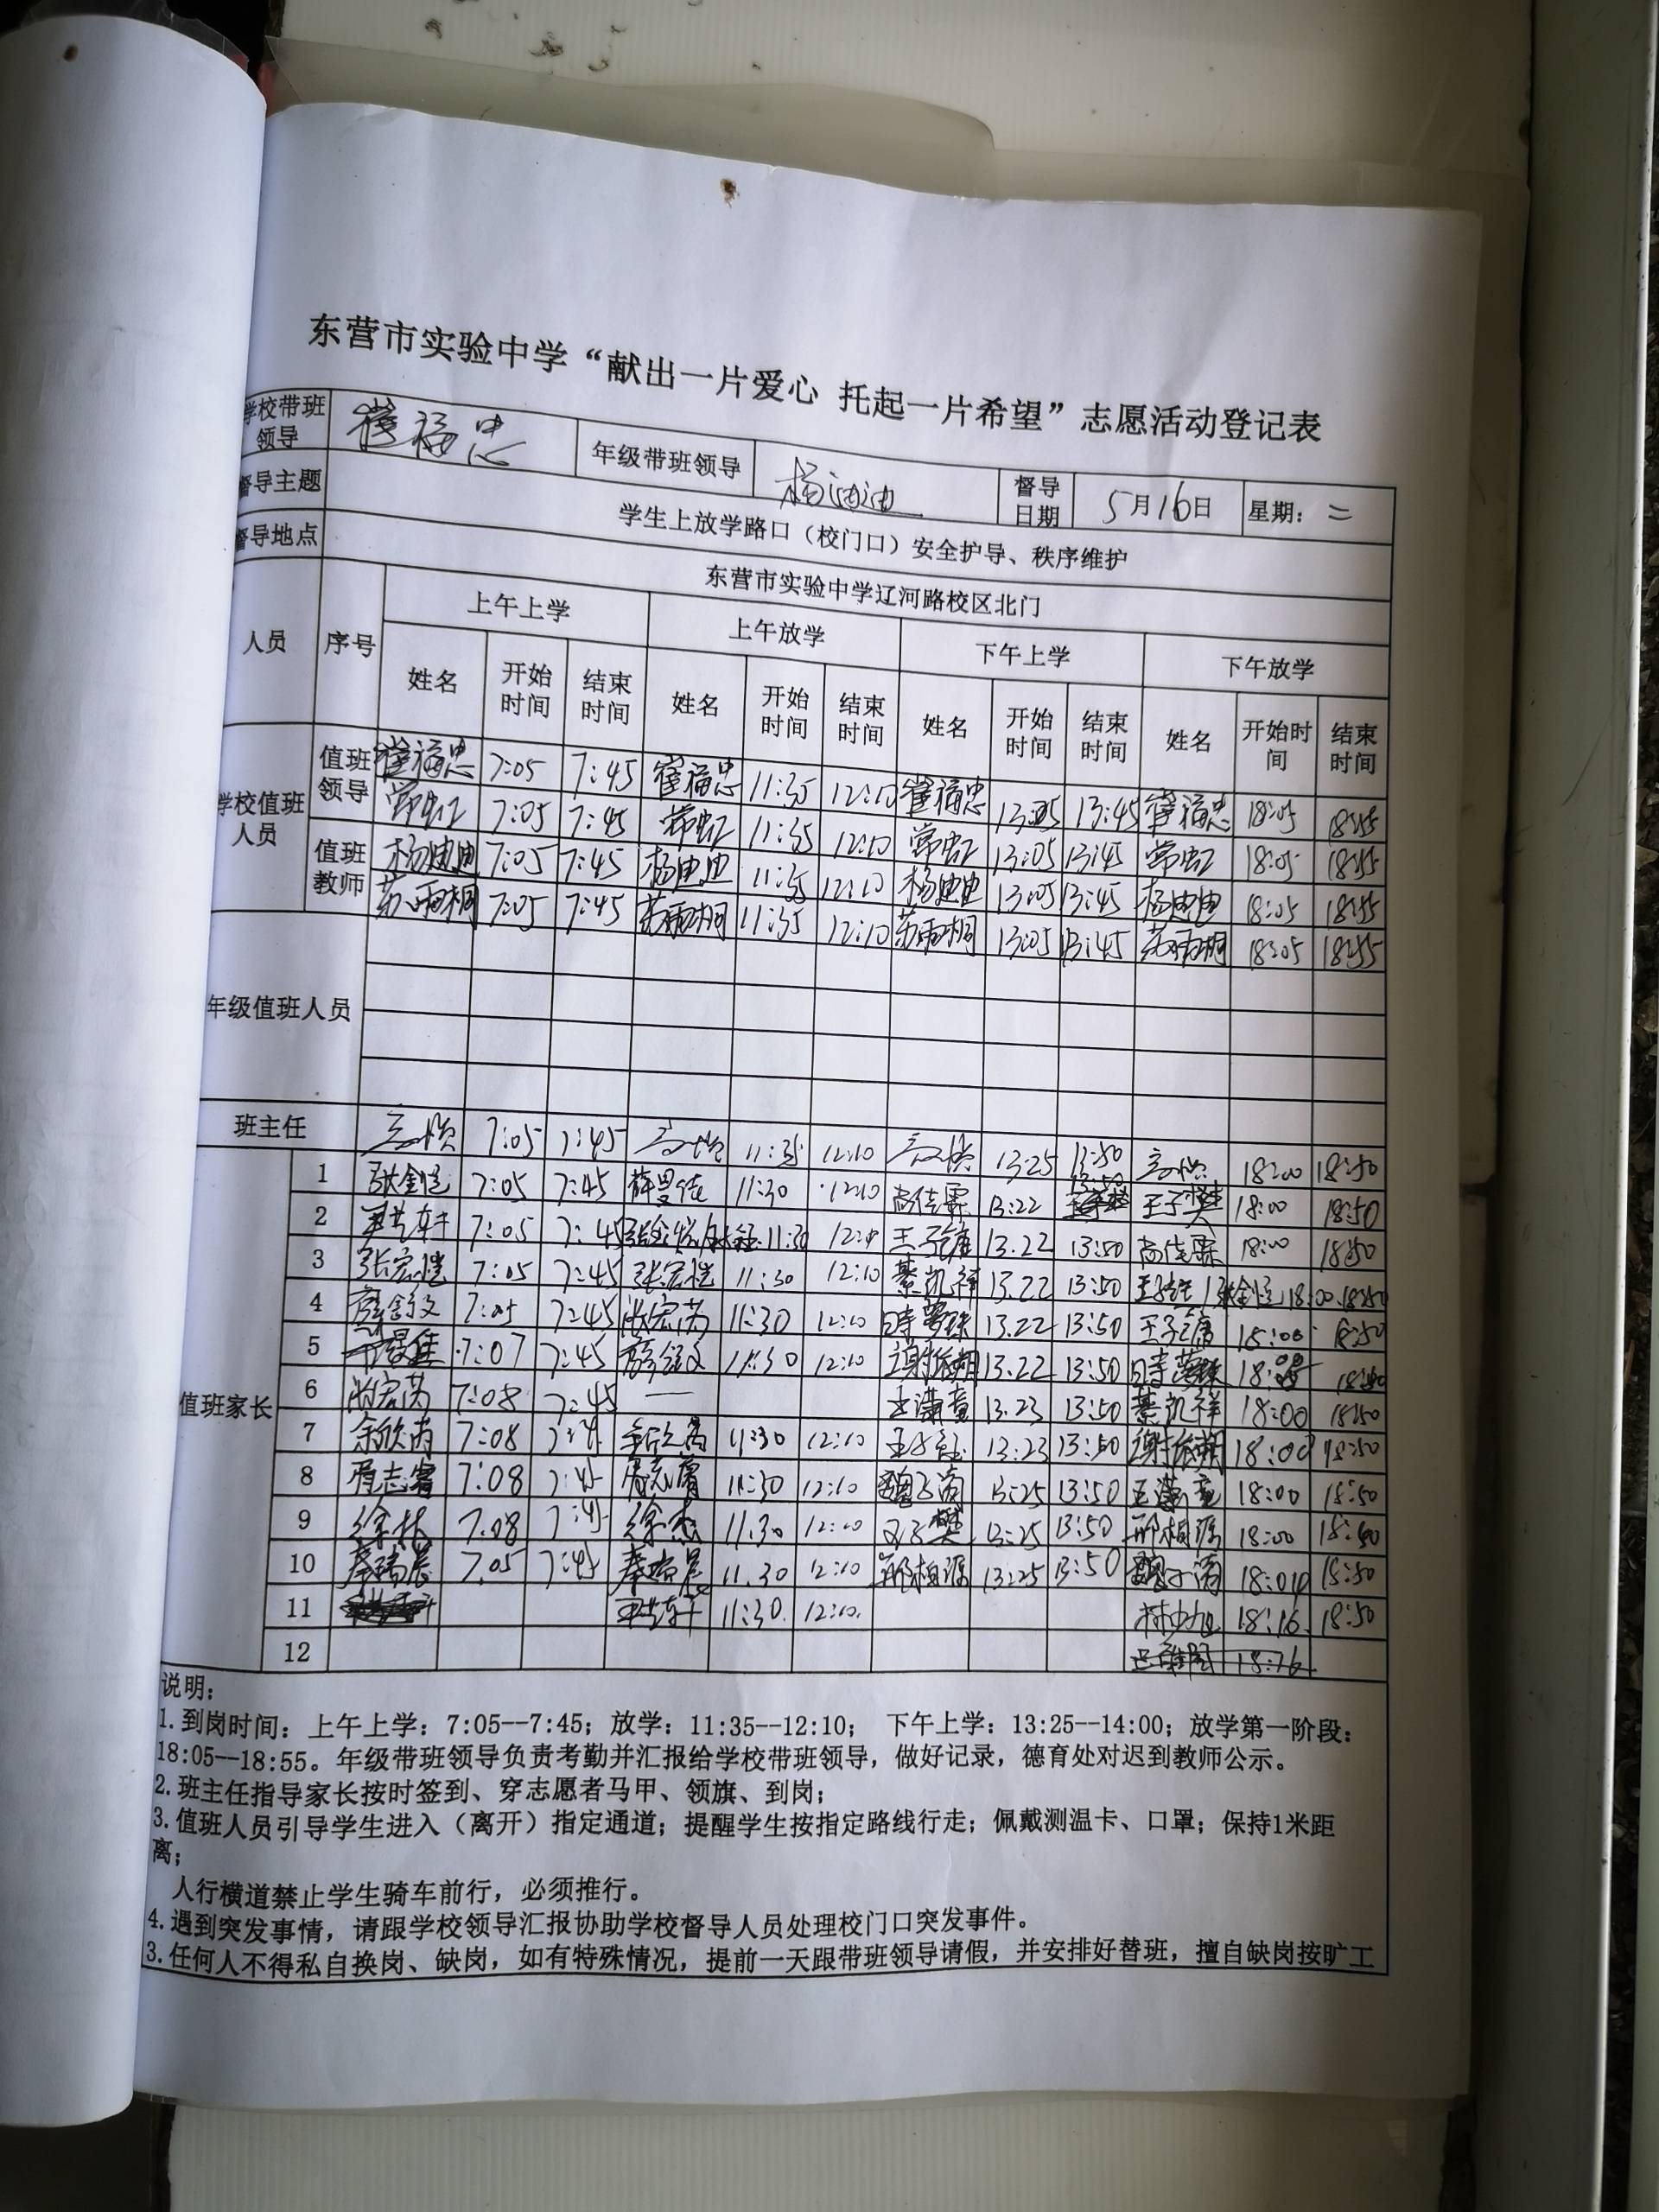 东营市实验中学“献出一片爱心 托起一片希望”志愿活动登记表
学校带班领导 崔福忠 年级带班领导 杨迪迪 督导日期 5月16日 星期：二
督导主题 学生上放学路口（校门口）安全护导、秩序维护
督导地点 东营市实验中学辽河路校区北门
人员 序号 上午上学 上午放学 下午上学 下午放学
姓名 开始时间 结束时间 姓名 开始时间 结束时间 姓名 开始时间 结束时间 姓名 开始时间 结束时间
学校值班人员 值班领导 崔福忠 7:05 7:45 崔福忠 11:35 12:10 崔福忠 13:05 13:45 崔福忠 18:05 18:55
常虹 7:05 7:45 常虹 11:35 12:10 常虹 13:05 13:45 常虹 18:05 18:55
值班教师 杨迪迪 7:05 7:45 杨迪迪 11:35 12:10 杨迪迪 13:05 13:45 杨迪迪 18:05 18:55
苏雨桐 7:05 7:45 苏雨桐 11:35 12:10 苏雨桐 13:05 13:45 苏雨桐 18:05 18:55
年级值班人员
班主任 7:05 7:45 11:35 12:10 13:25 13:50 18:00 18:50
值班家长
1 7:05 7:45 11:30 12:10 尚佳霖 13:22 13:50 王子樊 18:00 18:50
2 7:05 7:45 11:30 13.22 13:50 尚佳霖 18:00 18:50
3 张宏恺 7:05 7:45 张宏恺 11:30 12:10 綦凯祥 13.22 13:50 18:00 18:50
4 7:05 7:45 11:30 12:10 13.22 13:50 18:00 18:50
5 7:07 7:45 11:30 12:10 13.22 13:50 18:50
6 7:08 7:45 — 王潇童 13.23 13:50 綦凯祥 18:00 18:50
7 余欣芮 7:08 11:30 12:10 13:23 13:50 18:00 18:50
8 7:08 7:45 11:30 12:10 13:25 13:50 王潇童 18:00 18:50
9 7.08 徐杰 11.30 12:10 13:25 13:50 邢桓源 18:00 18:50
10 秦瑞晨 7.05 7:45 秦瑞晨 11.30 12:10 邢桓源 13:25 13:50 18:50
11 11:30 12:10 18:16 18:50
12
说明：
1.到岗时间：上午上学：7:05--7:45；放学：11:35--12:10； 下午上学：13:25--14:00；放学第一阶段：
18:05--18:55。年级带班领导负责考勤并汇报给学校带班领导，做好记录，德育处对迟到教师公示。
2.班主任指导家长按时签到、穿志愿者马甲、领旗、到岗；
3.值班人员引导学生进入（离开）指定通道；提醒学生按指定路线行走；佩戴测温卡、口罩；保持1米距
离；
人行横道禁止学生骑车前行，必须推行。
4.遇到突发事情，请跟学校领导汇报协助学校督导人员处理校门口突发事件。
3.任何人不得私自换岗、缺岗，如有特殊情况，提前一天跟带班领导请假，并安排好替班，擅自缺岗按旷工